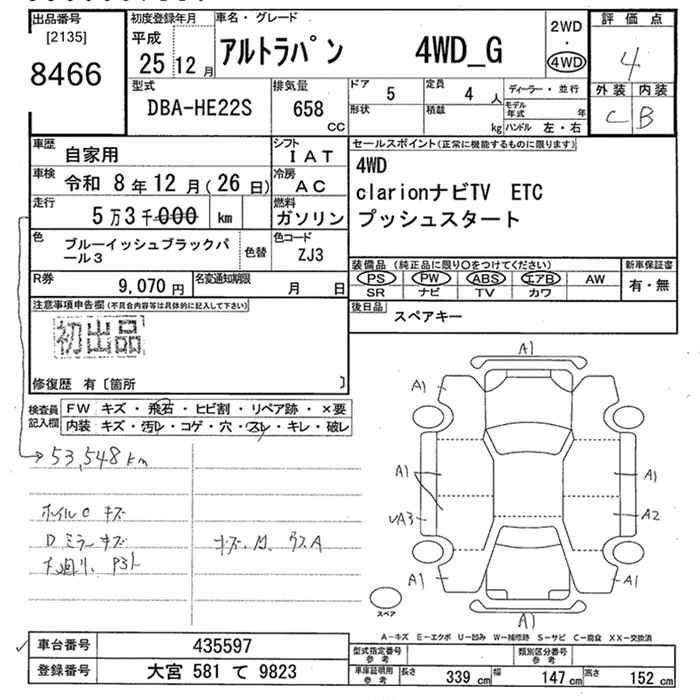 出品番号
[2135]
8466
初度登録年月
平成
25 12 月
車名・グレード
アルトラパン 4WD_G
2WD
・
4WD
評価点
4
外装 内装
C B
型式
DBA-HE22S
排気量
658
CC
ドア 5
定員 4 人
形状
積載 kg
ディーラー・並行
モデル年式 年
ハンドル 左・右
車歴 自家用
シフト IAT
車検 令和 8 年 12 月 ( 26 日)
冷房 AC
走行 5 万 3 千 000 km
燃料 ガソリン
色 ブルーイッシュブラックパール3
色替
色コード ZJ3
R券 9,070 円
名変通知期限 月 日
セールスポイント(正常に機能するものに限ります)
4WD
clarionナビTV ETC
プッシュスタート
装備品 (純正品に限り〇をつけてください)
新車保証書
PS PW ABS エアB AW
SR ナビ TV カワ
有・無
後日品 スペアキー
注意事項申告欄(不具合内容等は具体的に記入して下さい)
初出品
修復歴 有〔箇所 〕
検査員記入欄
FW キズ・飛石・ヒビ割・リペア跡・×要
内装 キズ・汚レ・コゲ・穴・スレ・キレ・破レ
53,548km
ホイルC キズ
Dミラーキズ
キズ・凹、ウスA
A1
A1
A1
A1
A1
A1
A2
A3
A1
A1
A1
スペア
A－キズ E－エクボ U－凹み W－補修跡 S－サビ C－腐食 XX－交換済
車台番号 435597
登録番号 大宮 581 て 9823
型式指定番号 参考
類別区分番号 参考
車庫証明用 参考
長さ 339 cm
幅 147 cm
高さ 152 cm